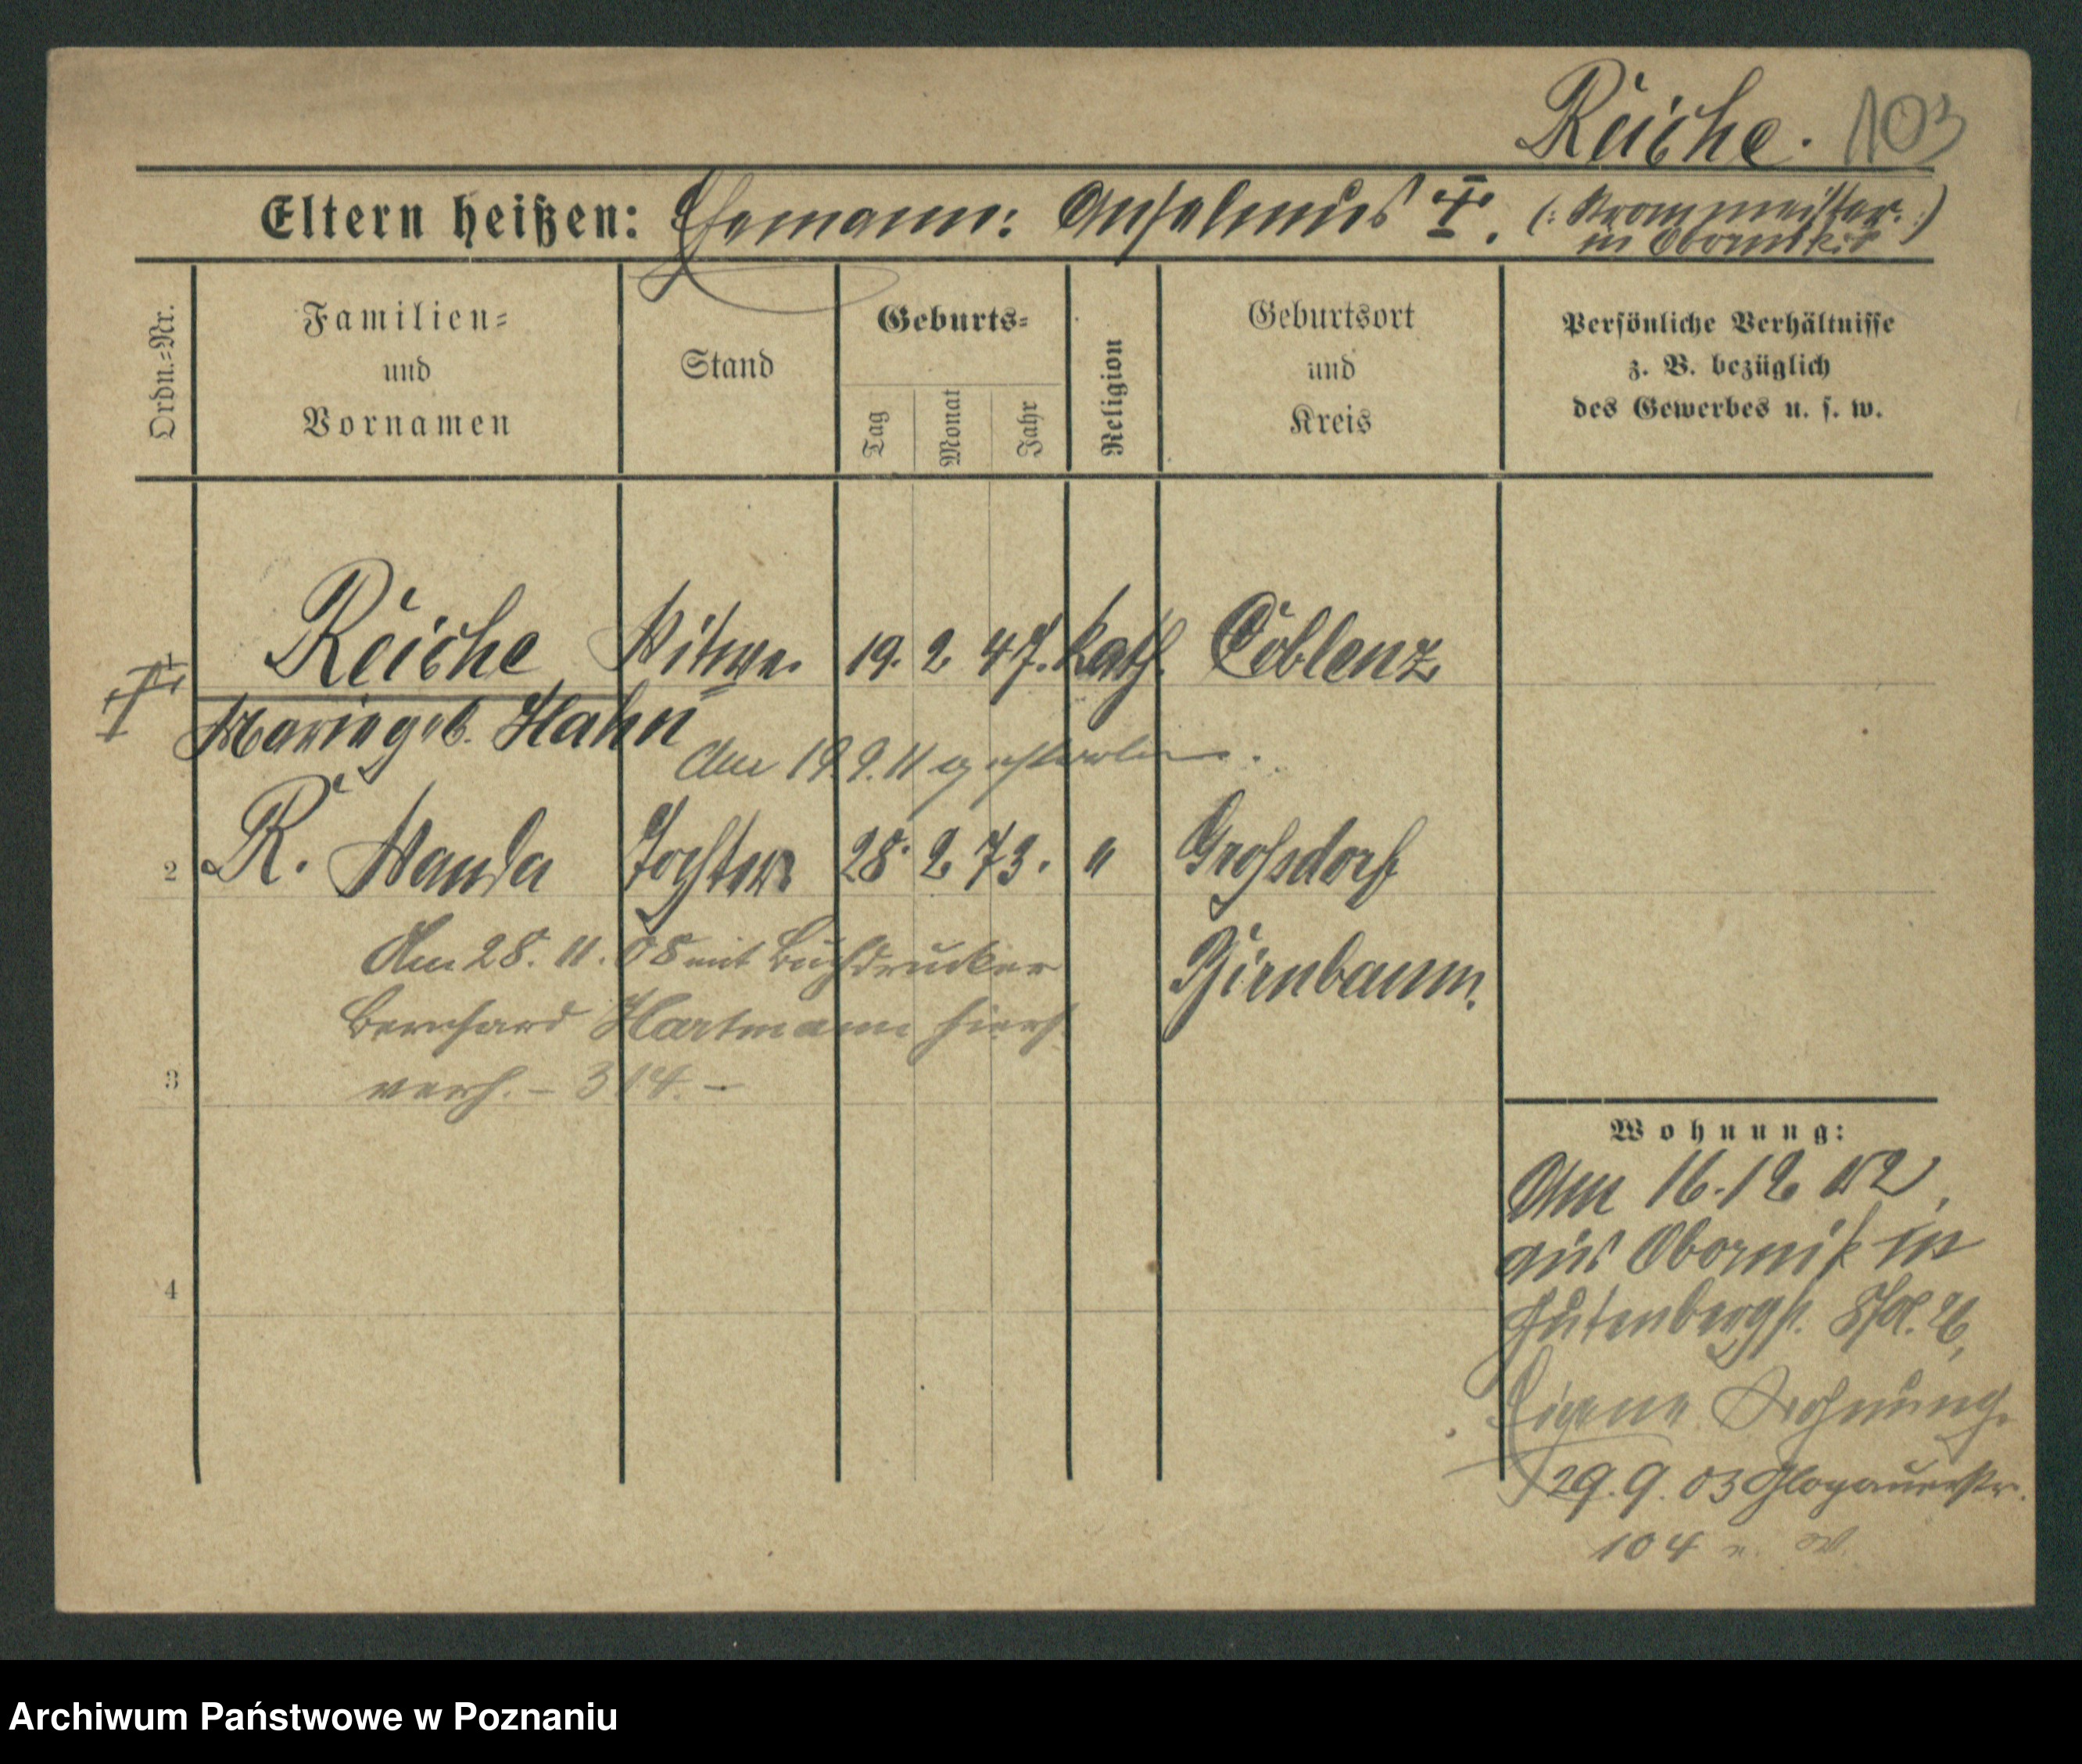 Reiche. 103
Eltern heißen: Ehemann: Anselmus †. (: Krommeister :)
in Obornik
Ordn.=Nr.
Familien=
und
Vornamen
Stand
Geburts=
Tag
Monat
Jahr
Religion
Geburtsort
und
Kreis
Persönliche Verhältnisse
z. B. bezüglich
des Gewerbes u. s. w.
1 Reiche Witwe. 19. 2 47. kath. Coblenz
† Marie geb. Hahn
Am 19. 9. 11 gestorben.
2 R. Wanda Tochter 28. 2 73. " Grossdorf
Birnbaum.
Am 28. 11. 08 mit Buchdrucker
Bernhard Hartmann hier
verh. – 314. –
3
4
Wohnung:
Am 16. 12 02
aus Obornik in
Gutenbergst.
Eigene Wohnung.
29. 9. 03 Glogauerstr.
104
Archiwum Państwowe w Poznaniu